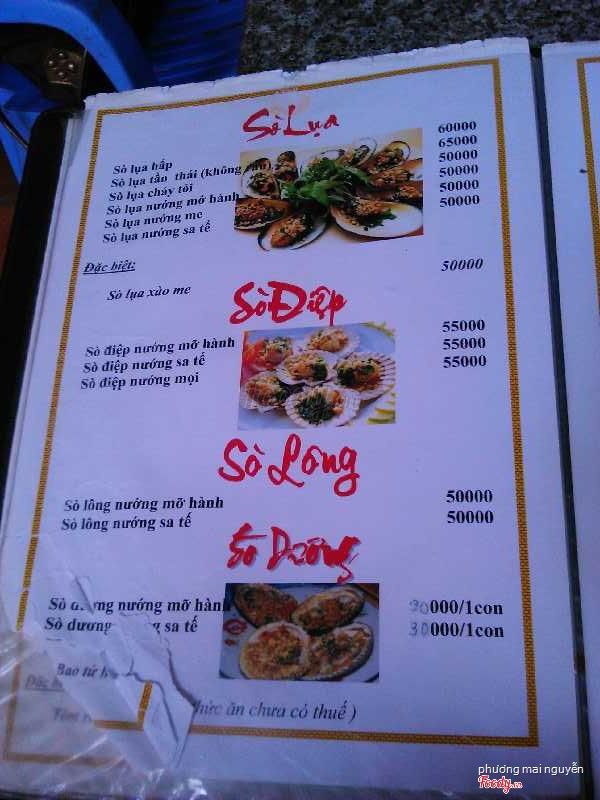 Sò Lụa
Sò lụa hấp 60000
Sò lụa tần thái (không 65000
Sò lụa cháy tỏi 50000
Sò lụa nướng mỡ hành 50000
Sò lụa nướng me 50000
Sò lụa nướng sa tế 50000
Đặc biệt:
Sò lụa xào me 50000
Sò Điệp
Sò điệp nướng mỡ hành 55000
Sò điệp nướng sa tế 55000
Sò điệp nướng mọi 55000
Sò Lông
Sò lông nướng mỡ hành 50000
Sò lông nướng sa tế 50000
Sò Dương
Sò nướng mỡ hành 30000/1con
Sò dương sa tế 30000/1con
Bao tử
thức ăn chưa có thuế )
phương mai nguyễn
Foody.vn